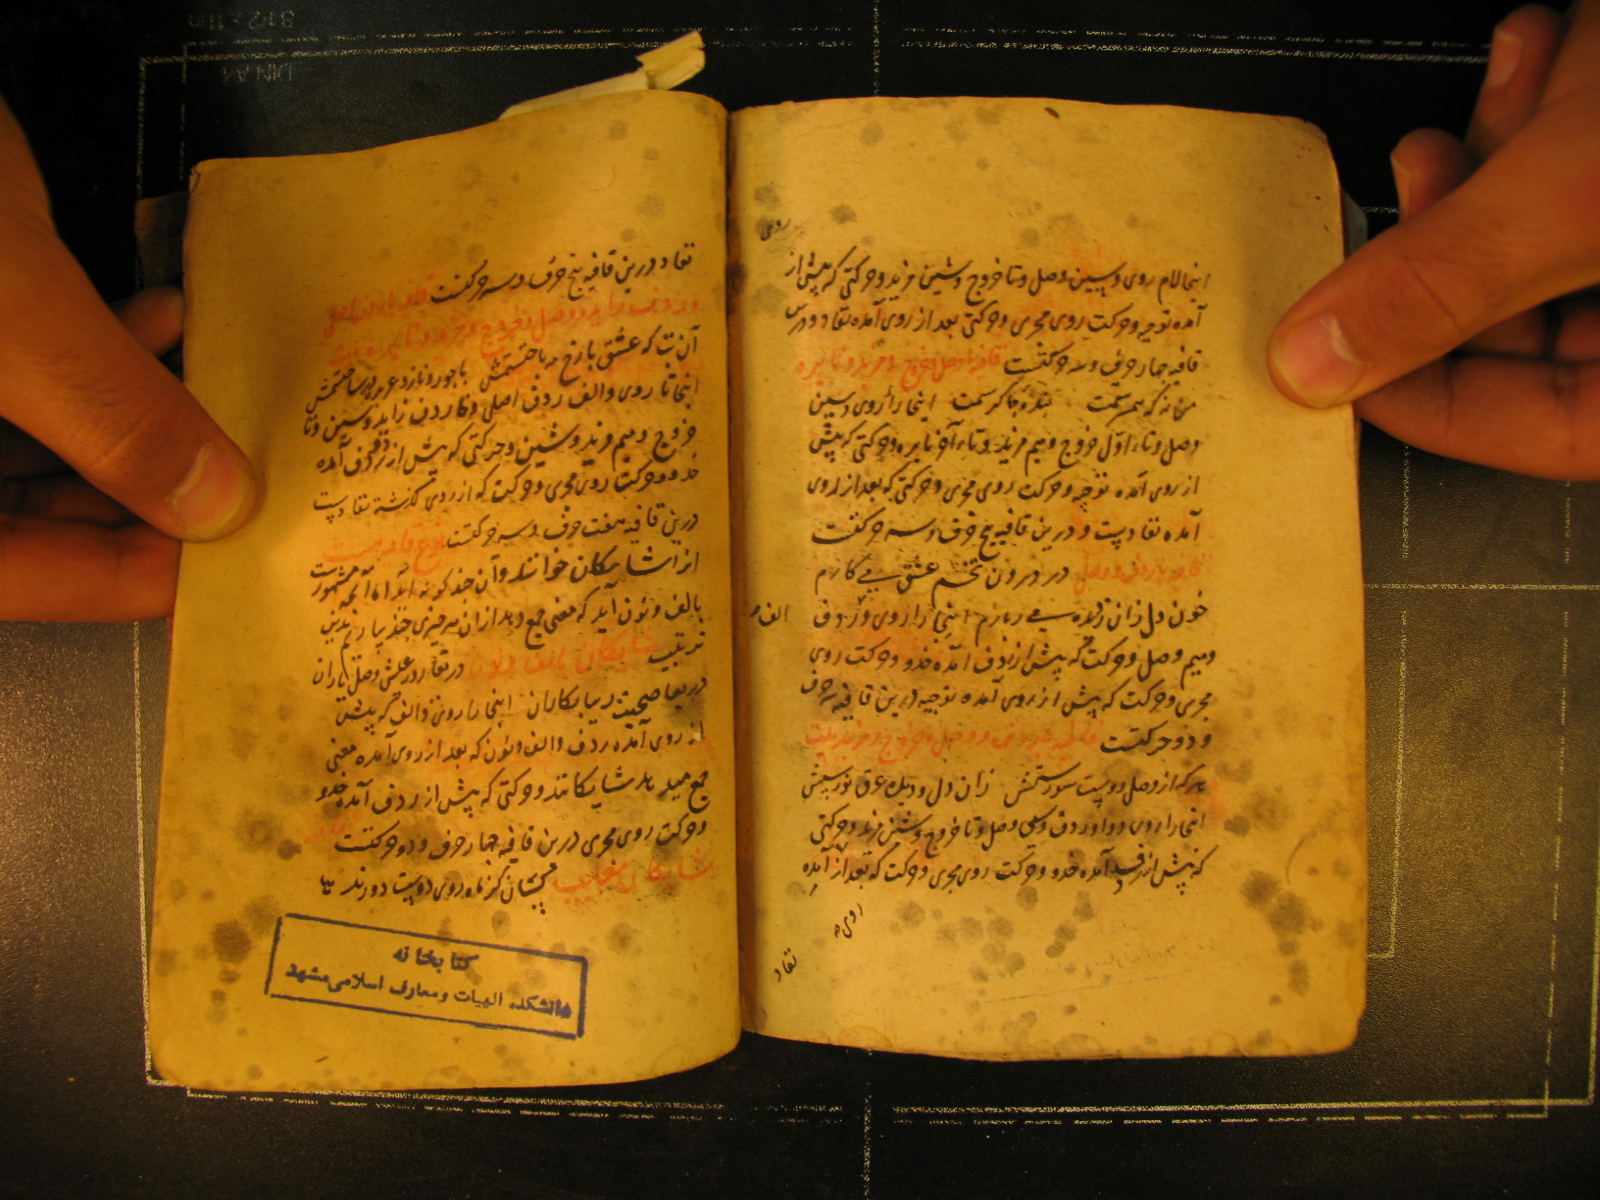 روی
اینجا لام روی و سین وصل و تا خروج و شین مزید و حرکتی که پیش از
آمده توجیه و حرکت روی مجری و حرکتی بعد از روی آمده نفاد و درین
قافیه چهار حرف و سه حرکتست قافیه با وصل و خروج و مزید و نایره
بنده چاکر ستمت اینجا را روی و سین
وصل و تاء اول خروج و میم مزید و تاء آخر نایره و حرکتی که پیش
از روی آمده توجیه و حرکت روی مجری و حرکتی که بعد از روی
آمده نفادست و درین قافیه پنج حرف و سه حرکتست
قافیه با ردف و وصل در درون تخم عشق می کارم
خون دل زان دیده می بارم اینجا را روی و ردف
الف و
و میم وصل و حرکت که پیش از ردف آمده حذو و حرکت روی
مجری و حرکت که پیش از روی آمده توجیه درین قافیه سه حرف
و دو حرکتست قافیه بردف و وصل و خروج و مزید بیت
هر که از وصل دوست سورستش زان دل و دیده غرق نورستش
اینجا را روی و واو ردف و سین وصل و تا خروج و شین مزید و حرکتی
که پیش از ردف آمده حذو و حرکت روی مجری و حرکت که بعد از آمده
روی
نفاد
نفاد درین قافیه پنج حرف و سه حرکتست قافیه با ردف اصلی
و ردف زاید و وصل و خروج و مزید و نایره بیت
آن بت که عشق با رخ مه باختستمش با جور و ناز و عربده ساختستمش
اینجا تا روی و الف ردف اصلی و خا ردف زاید و سین و تا
خروج و میم مزید و شین و حرکتی که پیش از ردف آمده
حذو و حرکت روی مجری و حرکت که از روی گذشته نفادست
درین قافیه هفت حرف و سه حرکتست نوع قافیه هست
از اشایکان خوانند و آن چند گونه آید اما آنچه مشهورست
بالف و نون آید که معنی جمع دهد از ان هر چیزی چند بیاریم بدین
ترتیب شایکان بالف و نون در نقار روز عیش وصل یاران
دریغا صحبت زیبا نگاران اینجا را روی و الف که پیش
از روی آمده ردف و الف و نون که بعد از روی آمده معنی
جمع میدهد شایکانند و حرکتی که پیش از ردف آمده حذو
و حرکت روی مجری درین قافیه چهار حرف و دو حرکتست
شایکان معایب چشمان کز ماه روی دوست دورند
کتابخانه
دانشکده الهیات و معارف اسلامی مشهد
DIN A4